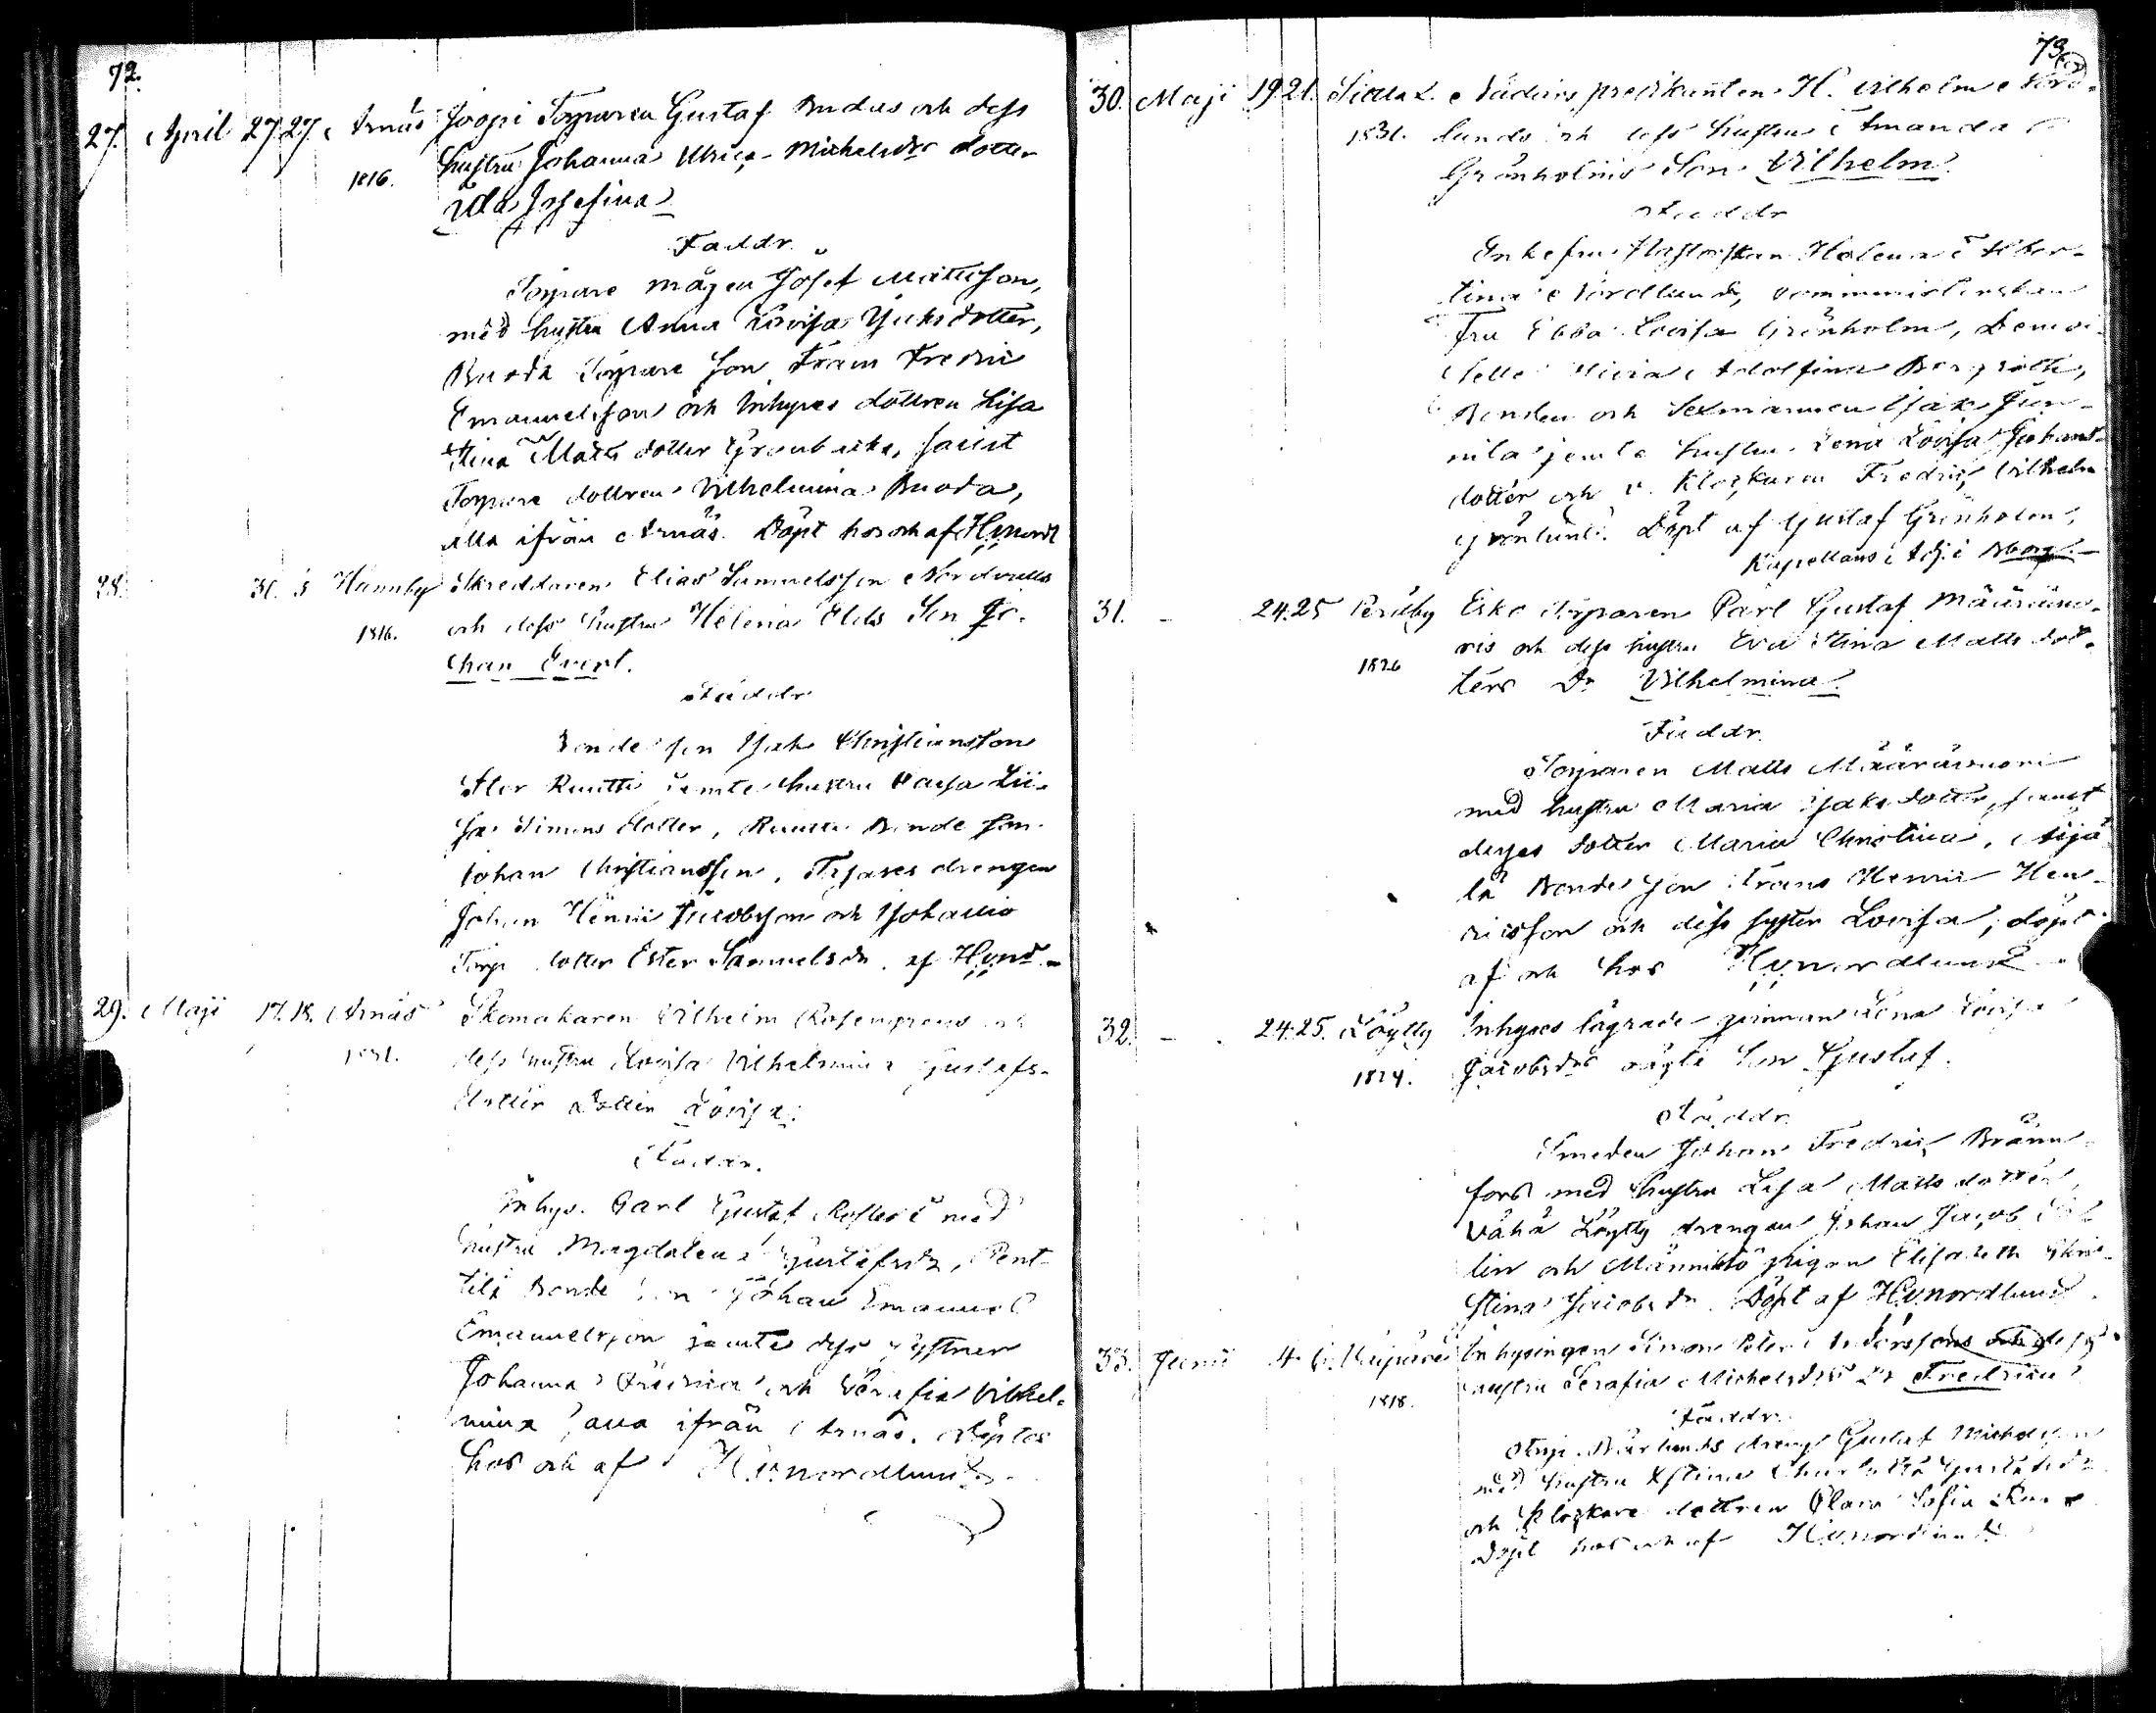 72.
27. April 27 27. Arnäs Joopi Torparen Gustaf Andus och dess
1816. hustru Johanna Ulrica Michelsdrs dotter
Ida Josefina
Faddr.
Torpare mågen Josef Mattsson,
med hustru Anna Lovisa Isaksdotter,
Buoda Torpare son Frans Fredric
Emanuelsson och Inhyses dottren Lisa
Stina Matts dotter Grönbacka, samt
Torpare dottren Vilhelmina Buoda,
alla ifrån Arnäs. Döpt hos och af HvNordl
28. 30. 3 Hannby Skreddaren Elias Samuelsson Nordvalls
1816. och dess hustru Helena Elds Son Jo-
han Evert.
Faddr
Bonde son Isak Christiansson
Ruutti jemte hustru Maja Lii-
sa Simons dotter, Bonde son
Johan Christiansson, drengen
Johan Henric Jacobsson och
Torp. dotter Ester Samuelsdr. af HvNord-
29. Maji 17. 18. Arnäs Skomakaren Vilhelm Rosengrens och
1831. dess hustru Lovisa Vilhelmina Gustafs-
dotter Dotter Lovisa.
Faddr.
Inhys. Carl Gustaf med
hustru Magdalena Gustafsdr, Pent-
tilä Bonde son Johan Emanuel
Emanuelsson jemte dess systrar
Johanna Fredrica och Serafia Vilhel-
mina, alla ifrån Arnäs. Döptes
hos och af HvNordlund
73
30. Maji 19. 21. Nådårs predikanten H. Vilhelm Nord-
1831. lunds och dess hustru Amanda
Grönholms Son Vilhelm.
Faddr
Enkefru Pastorskan Helena Alber-
tina Nordlund, Comministerskan
Fru Ebba Lovisa Grönholm, Demoi-
selle Adolfina Bergroth,
Bonden och Sexmannen Isak Jun-
nila jemte hustru Lena Lovisa Johans-
dotter och v. Klockaren Fredric Vilhelm
Grönlund. Döpt af Gustaf Grönholm,
Kapellans Adj. i
31. - 24. 25 Peräby Esko Torparen Carl Gustaf Määrävuo-
1826 ris och dess hustru Eva Stina Matts dot-
ters Dr Vilhelmina.
Faddr.
Torparen Matts Määrävuori
med hustru Maria Isaks dotter, samt
deras dotter Maria Christina,
lä Bonde son Frans Henric Hen-
ricsson och dess syster Lovisa, döpt
af och hos HvNordlund
32. - 24. 25. Löytty Inhyses lägrade qvinnan Lena Lovisa
1824. Jacobsdrs oägta Son Gustaf.
Faddr.
Smeden Johan Fredric Bränn-
fors med hustru Lisa Matts dotter,
Vähä Löytty drengen Johan Jacob
lin och Männistö pigan Elisabeth Chri-
stina Jacobsdr. Döpt af HvNordlund
33. Junii 4. 6. Inhysingen Simon Peter Anderssons och dess
1818. hustru Serafia Michelsdrs Dr Fredrica
Faddr.
dreng Gustaf Michelsson
med hustru Stina Charlotta Gustafsdr
och Klockare dottren Clara Sofia
Döpt hos och af HvNordlund